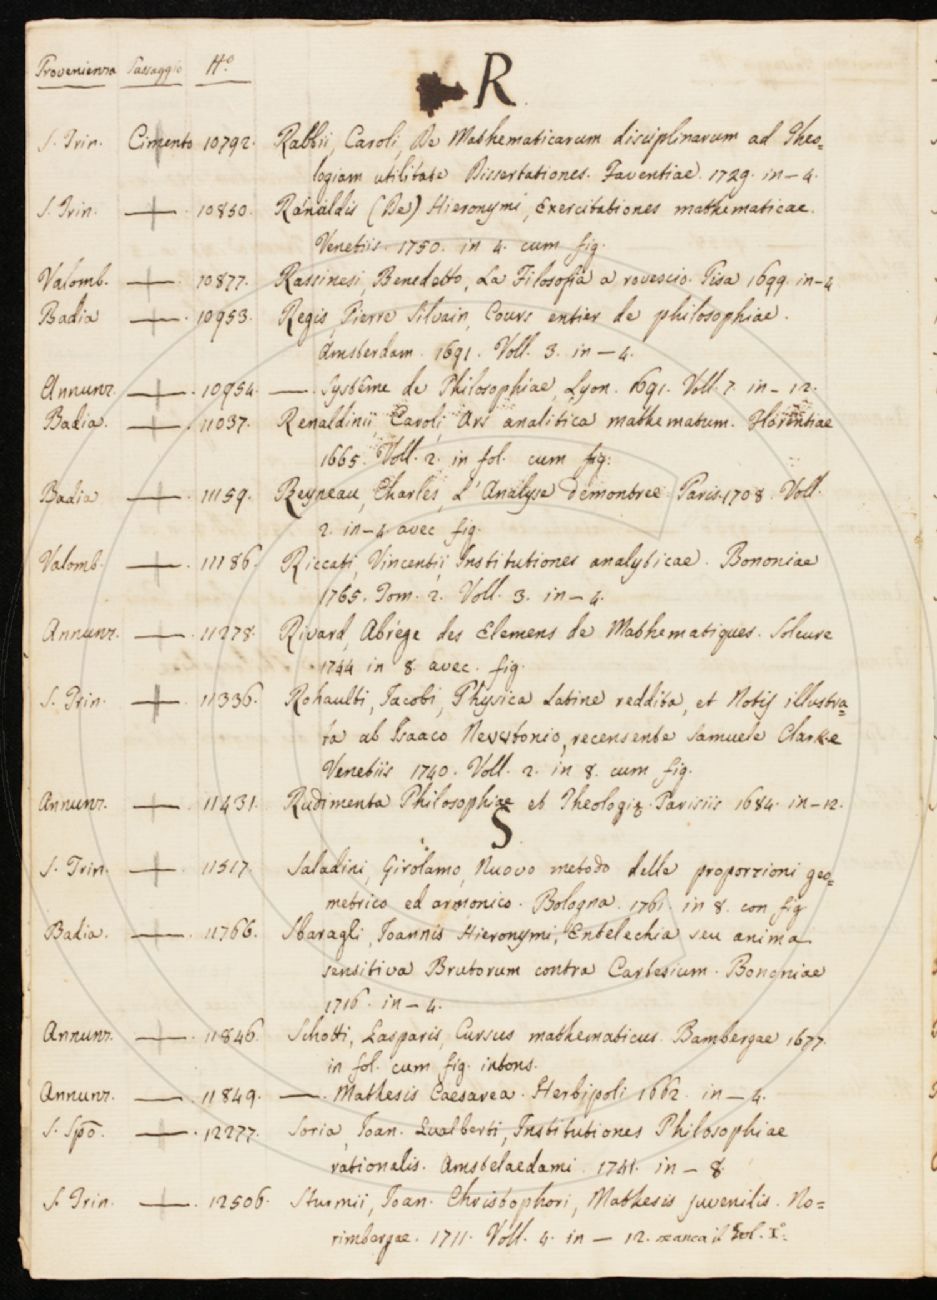 Provenienza Passaggio N.º
R
S. Trin. Cimento 10792. Rabbii, Caroli, De Mathematicarum disciplinarum ad Theo=
logiam utilitate Dissertationes. Faventiae. 1729. in-4.
S. Trin. — 10850. Ranaldis (De) Hieronymi, Exercitationes mathematicae.
Venetiis. 1750. in 4. cum fig.
Valomb. — 10877. Rassinesi, Benedetto, La Filosofia a rovescio. Pisa 1699. in-4
Badia — 10953. Regis, Pierre Silvain, Cours entier de philosophiae.
Amsterdam. 1691. Voll. 3. in — 4.
Annunz. — 10954. — . Systême de Philosophiae, Lyon. 1691. Voll. 7. in - 12.
Badia. — 11037. Renaldinii, Caroli, Ars analitica mathematum. Florentiae
1665. Voll. 2. in fol. cum fig:
Badia — 11159. Reyneau, Charles, L'Analyse démontree. Paris. 1708. Voll.
2. in-4 avec fig.
Valomb. — 11186. Riccati, Vincentii, Institutiones analyticae. Bononiae
1765. Tom. 2. Voll. 3. in - 4.
Annunz. — 11278. Rivard, Abrége des Elemens de Mathematiques. Soleure
1744 in 8. avec. fig.
S. Trin. — 11336. Rohaulti, Jacobi, Physica Latine reddita, et Notis illustra=
ta ab Isaaco Nevvtonio, recensente Samuele Clarke
Venetiis 1740. Voll. 2. in 8. cum fig.
Annunz. — 11431. Rudimenta Philosophiae et Theologiæ. Parisiis 1684. in-12.
S
S. Trin. — 11517. Saladini, Girolamo, Nuovo metodo delle proporzioni geo=
metrico ed armonico. Bologna. 1761. in 8. con fig
Badia. — 11766. Sbaragli, Joannis Hieronymi, Entelechia seu anima
sensitiva Brutorum contra Cartesium. Bononiae
1716. in - 4.
Annunz. — 11846. Schotti, Gasparis, Cursus mathematicus. Bambergae 1677.
in fol. cum fig. intons.
Annunz. — 11849. — . Mathesis Caesarea. Herbipoli 1662. in - 4.
S. Spõ. — 12277. Soria, Joan. Gualberti, Institutiones Philosophiae
rationalis. Amstelaedami. 1741. in - 8.
S. Trin. — 12506. Sturmii, Joan. Christophori, Mathesis juvenilis. No=
rimbergae. 1711. Voll. 4. in — 12. manca il Vol. I.º